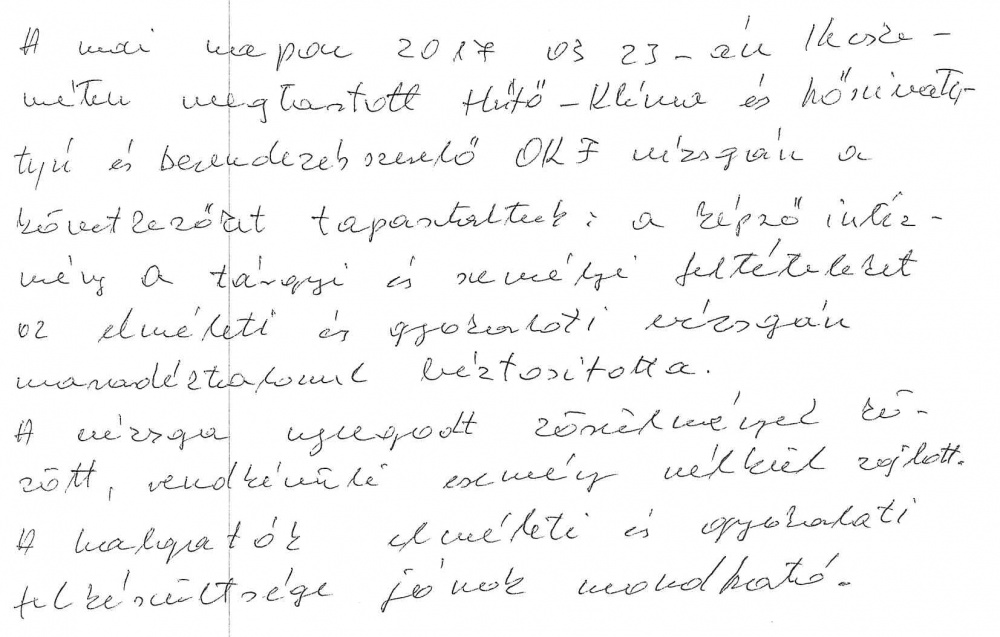 A mai napon 2017 03 23-án Kecske-
méten megtartott Hűtő-Klíma és hőszivaty-
tyú és berendezés szerelő OKJ vizsgán a
következőket tapasztaltuk: a képző intéz-
mény a tárgyi és személyi feltételeket
az elméleti és gyakorlati vizsgán
maradéktalanul biztosította.
A vizsga nyugodt körülmények kö-
zött, rendkívüli esemény nélkül zajlott.
A hallgatók elméleti és gyakorlati
felkészültsége jónak mondható.